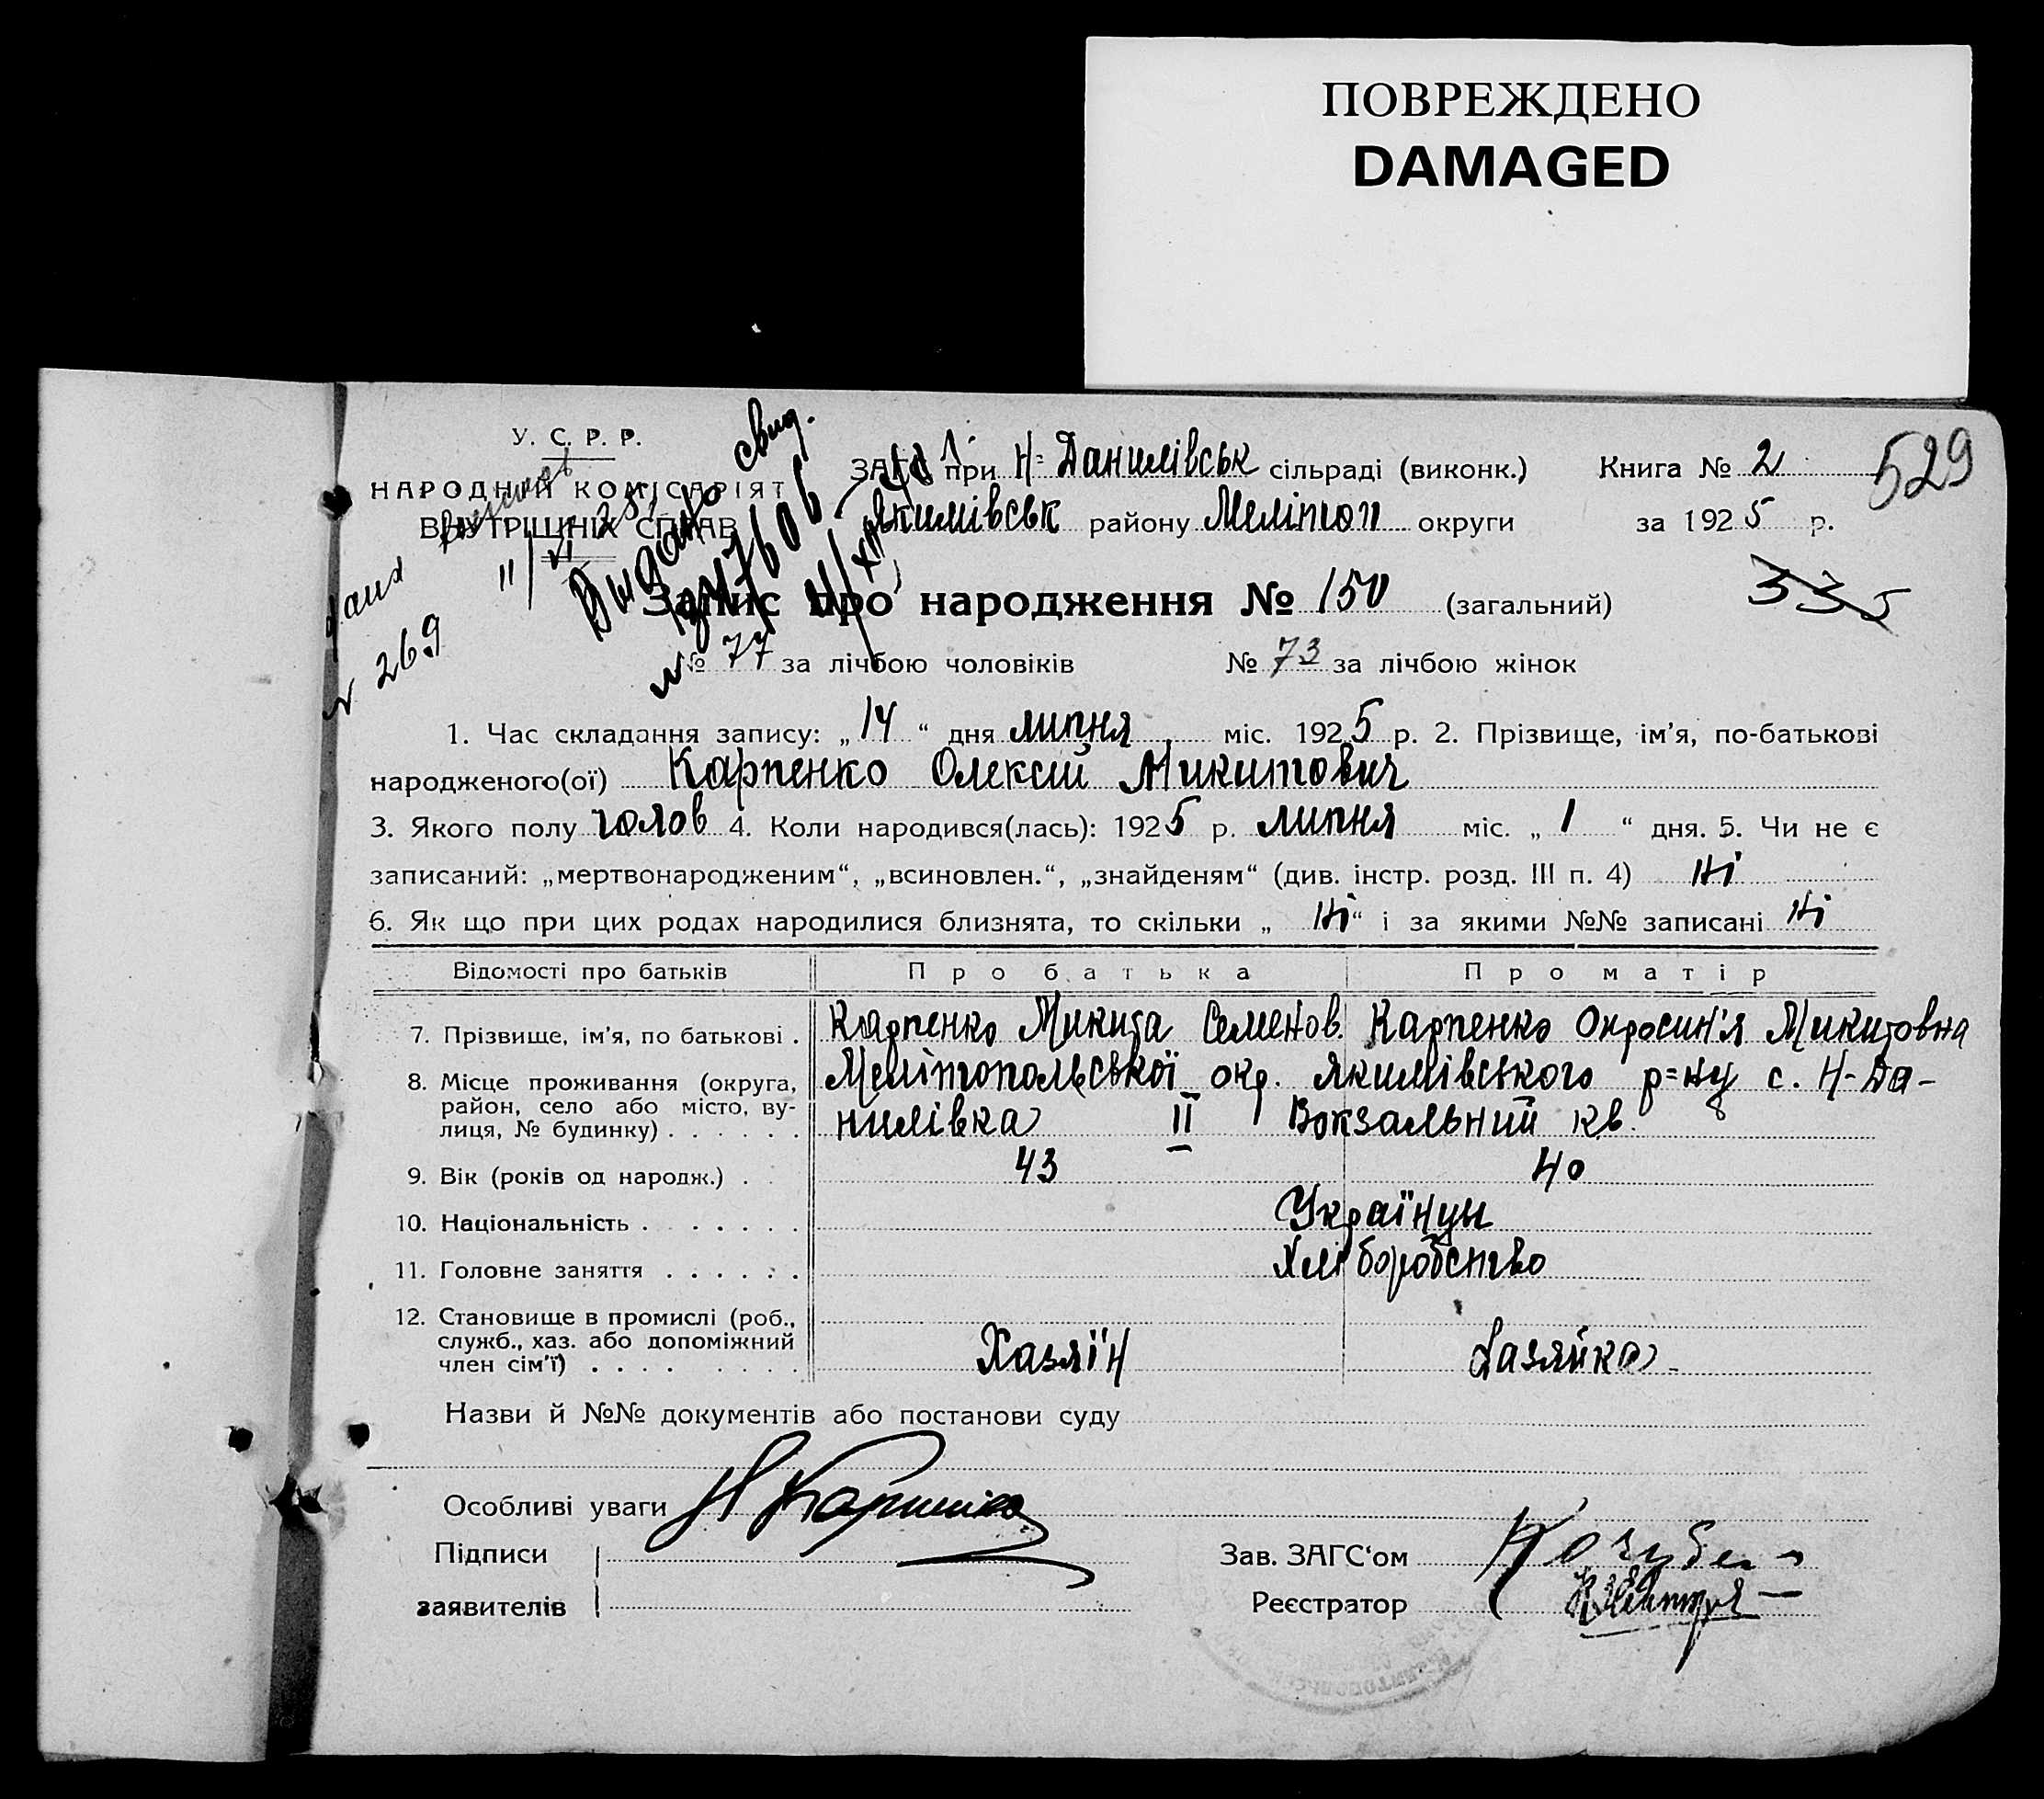 ПОВРЕЖДЕНО
DAMAGED
У. С. Р. Р.
НАРОДНИЙ КОМІСАРІЯТ
ВНУТРІШНІХ СПРАВ
Видано свид.
11/VI 25
№ 269
ЗАГС при Н-Данилівськ сільраді (виконк.) Книга № 2
529
Якимівськ району Меліпоп округи за 1925 р.
Запис про народження № 150 (загальний)
335
№ 77 за лічбою чоловіків № 73 за лічбою жінок
1. Час складання запису: „14“ дня липня міс. 1925 р. 2. Прізвище, ім'я, по-батькові
народженого(ої) Карпенко Олексій Микитович
3. Якого полу голов 4. Коли народився(лась): 1925 р. липня міс. „1“ дня. 5. Чи не є
записаний: „мертвонародженим“, „всиновлен.“, „знайденям“ (див. інстр. розд. III п. 4) Ні
6. Як що при цих родах народилися близнята, то скільки „Ні“ і за якими №№ записані Ні
Відомості про батьків Про батька Про матір
7. Прізвище, ім'я, по батькові . Карпенко Микита Семенов. Карпенко Опросин'я Микитовна
8. Місце проживання (округа, район, село або місто, вулиця, № будинку) . . . . . . Меліпопольської окр. Якимівського р=ну с. Н-Да-
нилівка II Вокзальний кв.
9. Вік (років од народж.) . . 43 40
10. Національність . . . . . . . Українци
11. Головне заняття . . . . . . Хліборобство
12. Становище в промислі (роб.,
служб., хаз. або допоміжний
член сім'ї) . . . . . . . . Хазяїн Хазяйка
Назви й №№ документів або постанови суду
Особливі уваги
Н Карпенко
Підписи
заявителів
Зав. ЗАГС'ом Кочубей
Реєстратор